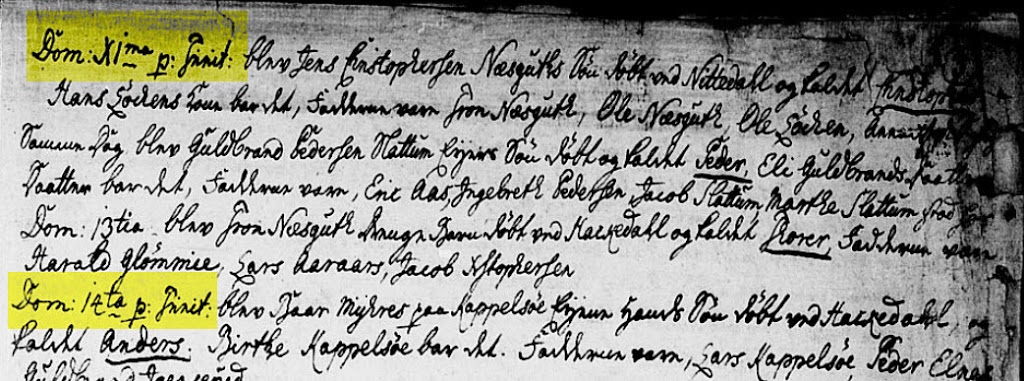 Dom: XIma p: Trinit: blev Jens Christophersen Næsguths Søn døbt ved Nittedahl og kaldet
Hans Løckens Kone bar det, Fadderne vare Iron Næsguth, Ole Næsguth, Ole Løcken,
Samme Dag blev Guldbrand Pedersen Slattum Eyers Søn døbt og kaldet Peder, Eli Guldbrands
Daatter bar det, Fadderne vare, Eric Aas, Ingebreth Pedersen, Jacob Slattum, Marthe Slattum stod
Dom: 13tia blev Iron Næsguth Drenge Barn døbt ved Hackedahl og kaldet Fadderne vare
Harald Glömmie, Lars Aaraars, Jacob Xstophersen
Dom: 14ta p: Trinit: blev paa Kappelsøe Søn døbt ved Hackedahl, og
kaldet Anders. Birthe Kappelsøe bar det. Fadderne vare, Lars Kappelsøe, Peder
Guldbrand